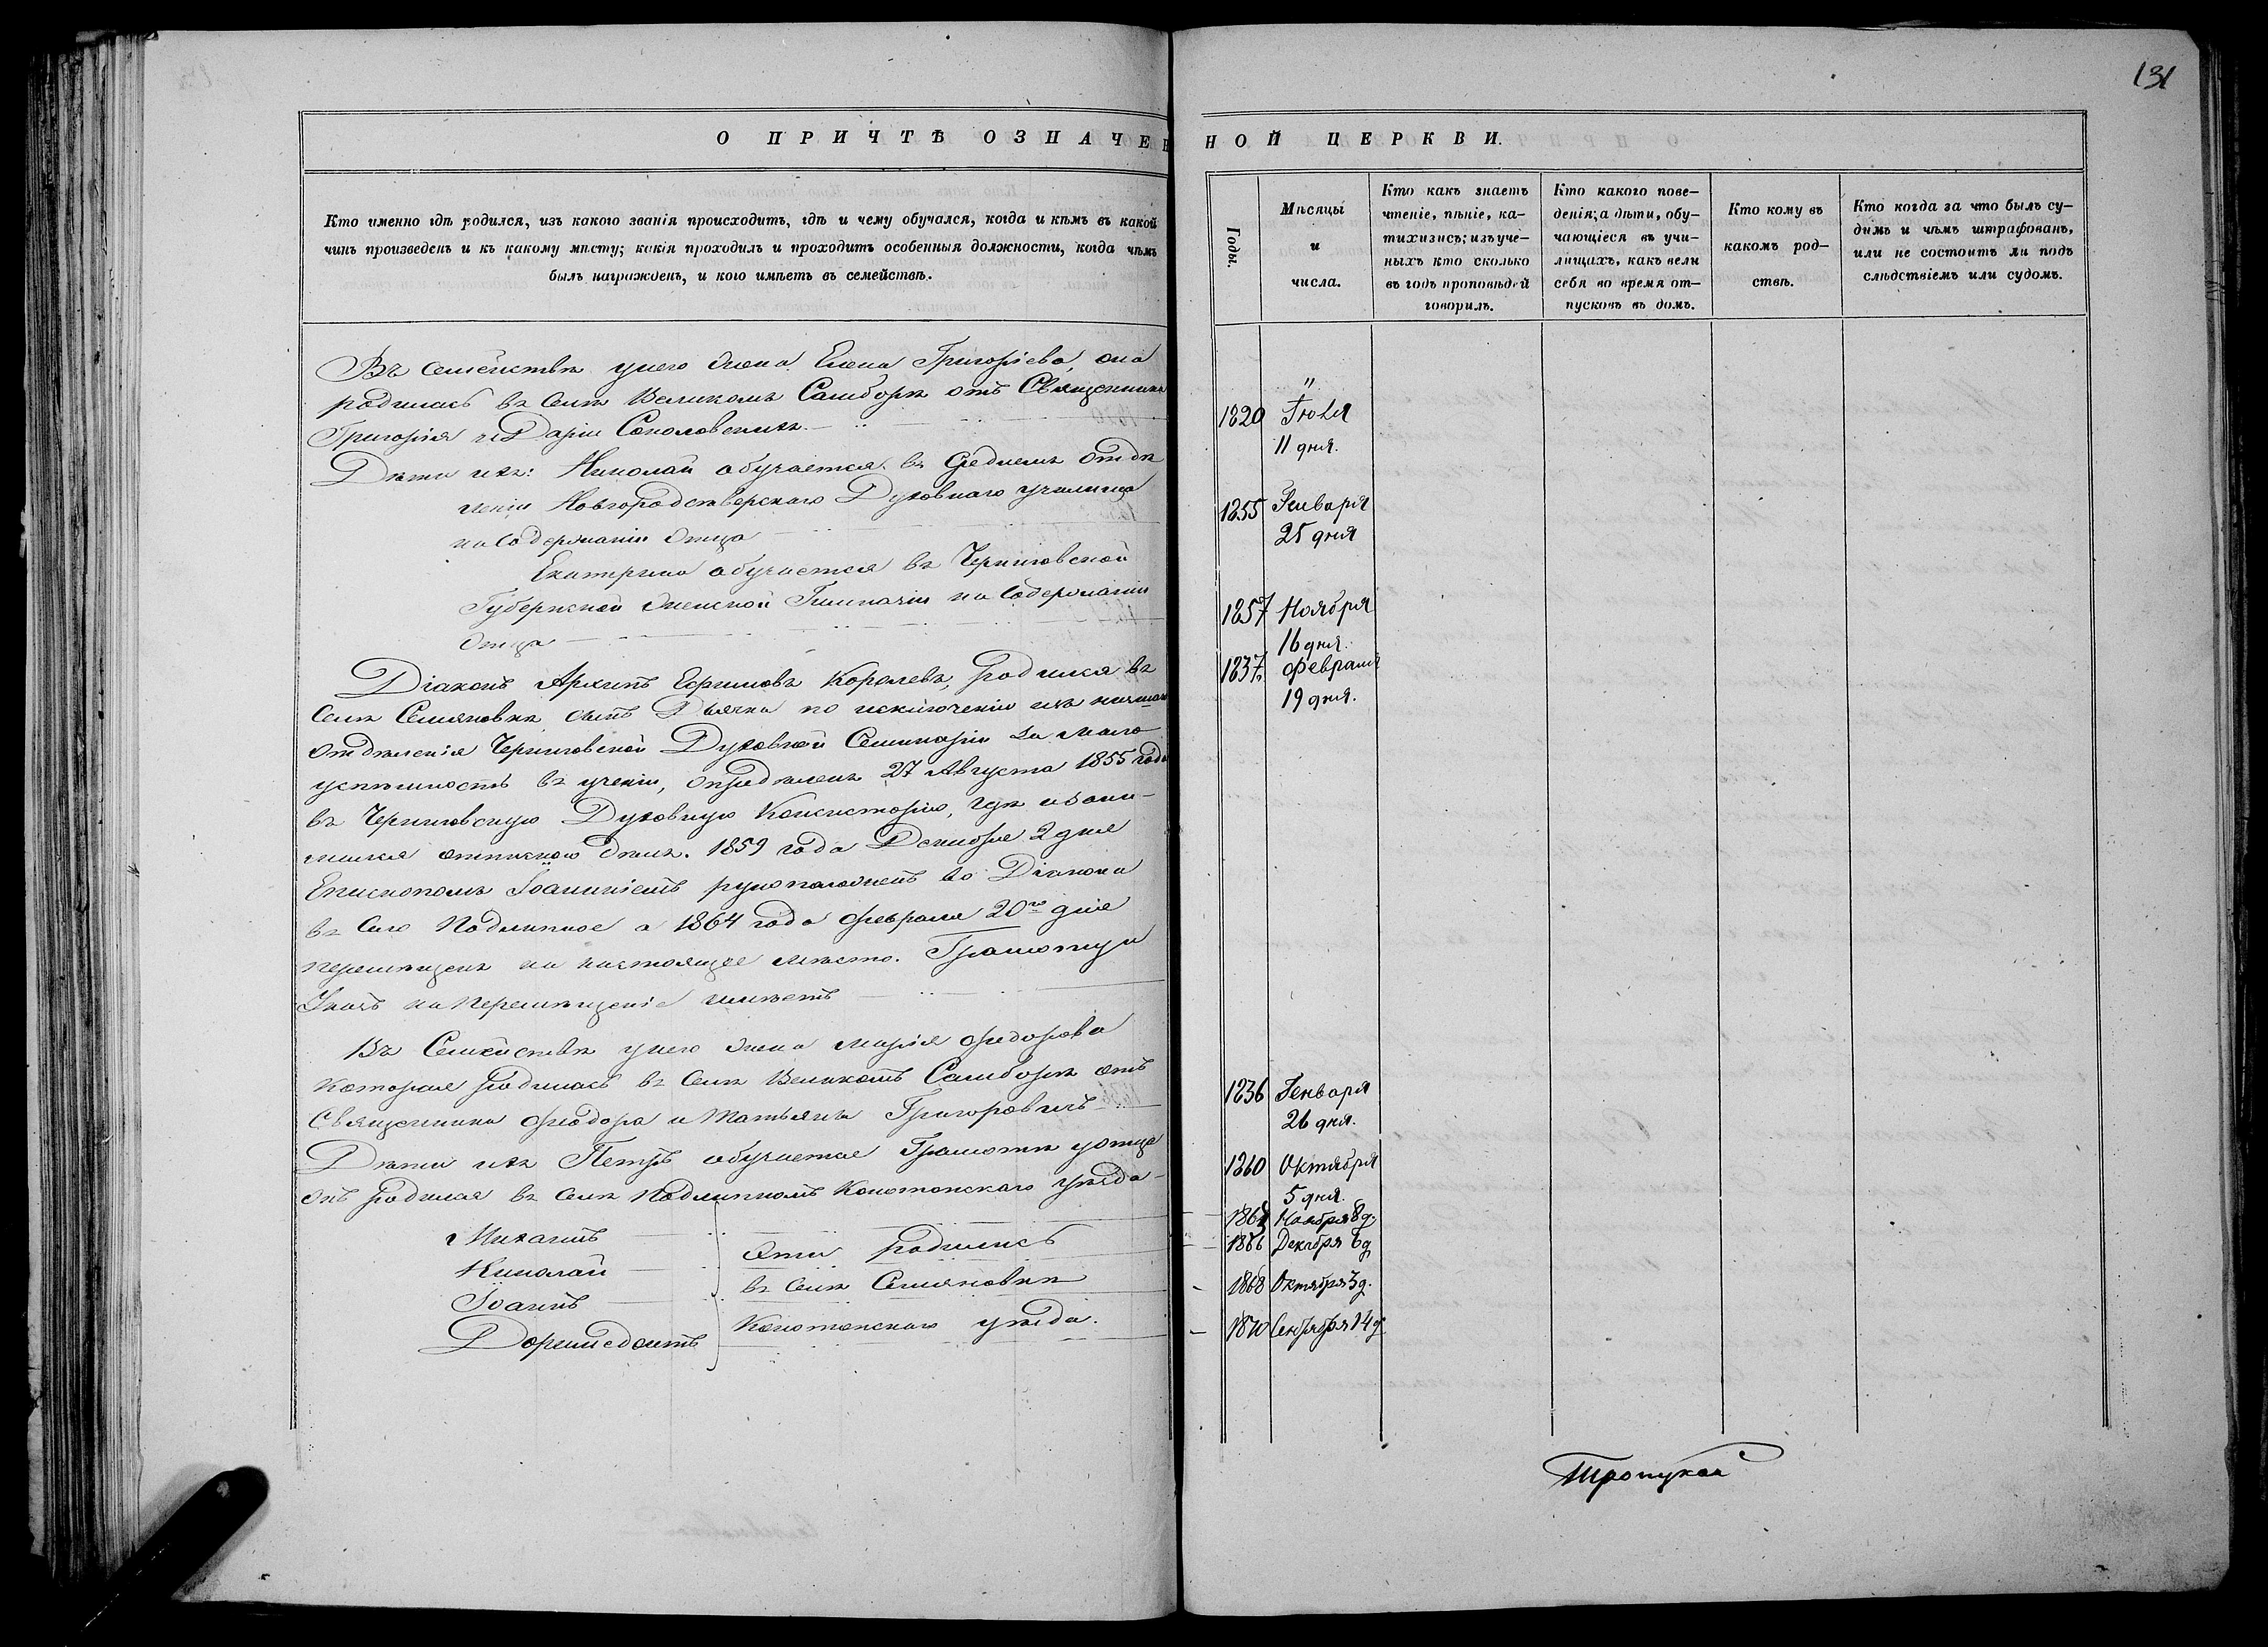 131
О ПРИЧТѢ ОЗНАЧЕННОЙ ЦЕРКВИ.
Кто именно гдѣ родился, изъ какого званія происходитъ, гдѣ и чему обучался, когда и кѣмъ въ какой
чинъ произведенъ и къ какому мѣсту; какія проходилъ и проходитъ особенныя должности, когда чѣмъ
былъ награжденъ, и кого имѣетъ въ семействѣ.
Въ семействѣ у него жена Елена Григоріева, она
родилась въ селѣ Великомъ Самборѣ отъ Священника
Григорія и Даріи Соколовскихъ.
Дѣти ихъ: Николай обучается въ Среднемъ отдѣ
леніи Новгородсѣверскаго Духовнаго училища
на содержаніи отца
Екатерина обучается въ Черниговской
Губернской женской Гимназіи на содержаніи
отца
Діаконъ Архипъ Ефимовъ Королевъ, родился въ
селѣ Семяновкѣ сынъ Дьячка по исключеніи изъ
отдѣленія Черниговской Духовной Семинаріи за мало
успѣшность въ ученіи, опредѣленъ 27 Августа 1855 года
въ Черниговскую Духовную Консисторію, гдѣ и зани-
мался дѣлъ. 1859 года Декабря 2 дня
Епископомъ Іоанникіемъ рукоположенъ во Діакона
въ село Подлипное а 1864 года февраля 20го дня
перемѣщенъ на настоящее мѣсто. Грамоту и
Указъ на перемѣщеніе имѣетъ
Въ Семействѣ у него жена Марія Федорова
которая родилась въ селѣ Великомъ Самборѣ отъ
Священника Феодора и Татьяны Григоровичъ
Дѣти ихъ Петръ обучается Грамотѣ у отца
онъ родился въ селѣ Подлипномъ Конотопскаго уѣзда
Михаилъ
Николай
Іоаннъ
Доримедонтъ
Эти родились
въ селѣ Семяновкѣ
Конотопскаго уѣзда.
Годы.
Мѣсяцы
и
числа.
Кто какъ знаетъ
чтеніе, пѣніе, ка-
тихизисъ; изъ уче-
ныхъ кто сколько
въ годъ проповѣдей
говорилъ.
Кто какого пове-
денія; а дѣти, обу-
чающіеся въ учи-
лищахъ, какъ вели
себя во время от-
пусковъ въ домъ.
Кто кому въ
какомъ род-
ствѣ.
Кто когда за что былъ су-
димъ и чѣмъ штрафованъ,
или не состоитъ ли подъ
слѣдствіемъ или судомъ.
"
1820 Іюля
11 дня.
1855 Января
25 дня
1857 Ноября
16 дня.
1837 февраля
19 дня.
1836 Генваря
26 дня.
1860 Октября
5 дня.
Ноября 8 д.
1866 Декабря 6 д
1868 Октября 3 д.
1870 Сентября 14 д